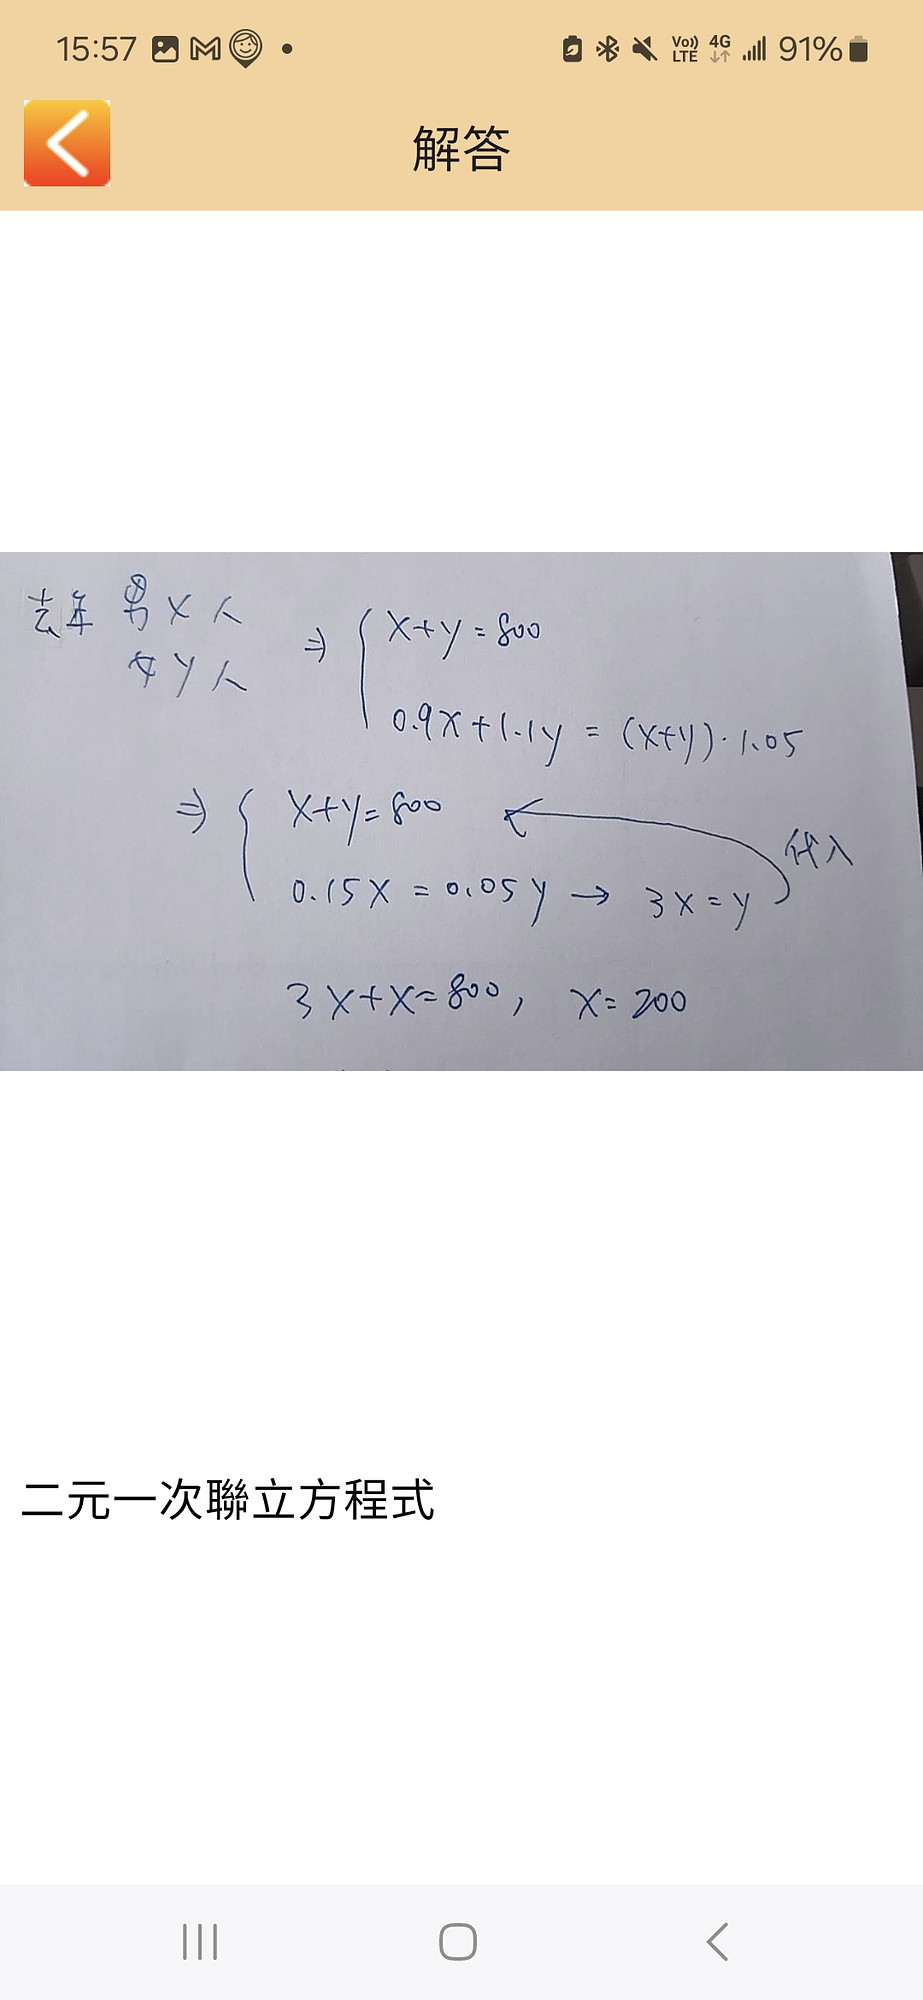 15:57
Vo)) LTE 4G 91%
解答
去年 男 x 人
女 y 人
⇒ { x+y=800
0.9x+1.1y = (x+y)·1.05
⇒ { x+y=800
代入
0.15x = 0.05y → 3x=y
3x+x=800, x=200
二元一次聯立方程式